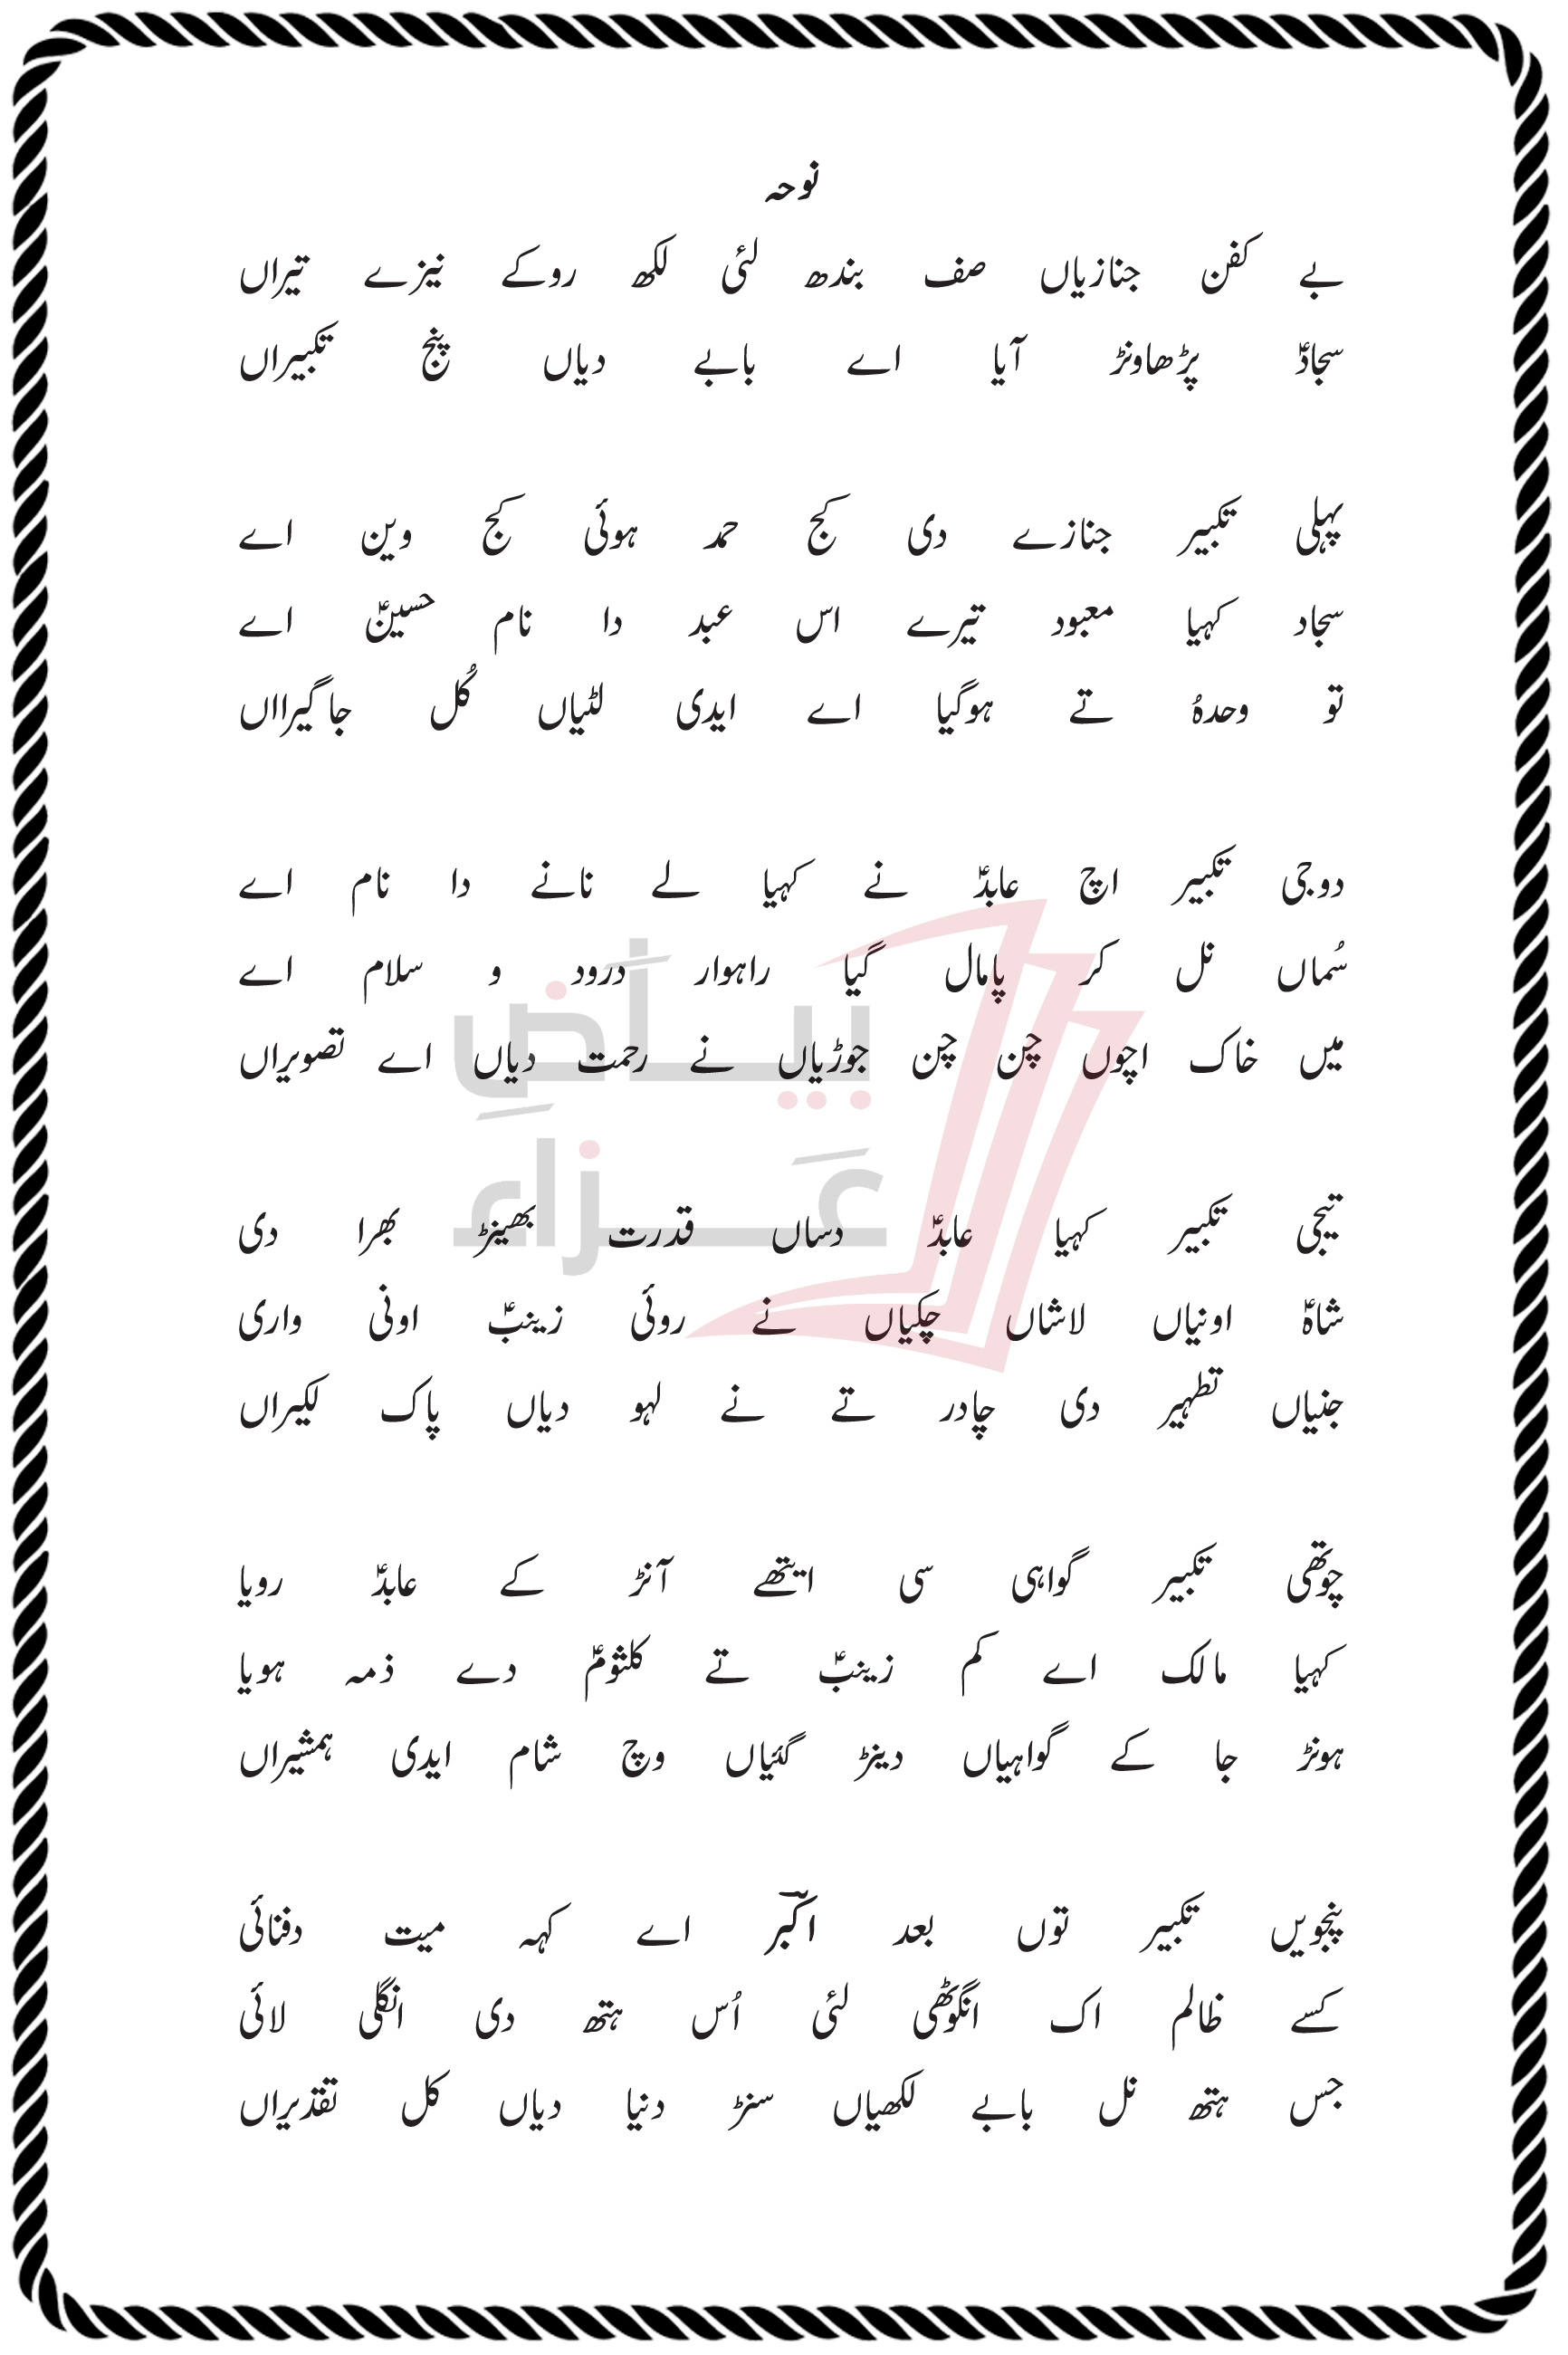 نوحہ
بے کفن جنازیاں صف بندھ لئی لکھ روکے نیزے تیراں
سجادؑ پڑھاونڑ آیا اے بابے دیاں پنج تکبیراں
پہلی تکبیر جنازے دی کج حمد ہوئی کج وین اے
سجاد کہیا معبود تیرے اس عبد دا نام حسینؑ اے
تو وحدہُ تے ہوگیا اے ایدی لٹیاں کُل جاگیرااں
دوجی تکبیر اچ عابدؑ نے کہیا لے نانے دا نام اے
سُماں نل کر پامال گیا راہوار درود و سلام اے
میں خاک اچوں چن چن جوڑیاں نے رحمت دیاں اے تصویراں
تیجی تکبیر کہیا عابدؑ دساں قدرت بھینڑ بھرا دی
شاہؑ اونیاں لاشاں چکیاں نے روئی زینبؑ اونی واری
جنیاں تطہیر دی چادر تے نے لہو دیاں پاک لکیراں
چوتھی تکبیر گواہی سی ایتھے آنڑ کے عابدؑ رویا
کہیا مالک اے کم زینبؑ تے کلثومؑ دے ذمہ ہویا
ہونڑ جا کے گواہیاں دینڑ گئیاں وچ شام ایدی ہمشیراں
پنجویں تکبیر توں بعد اکبؔر اے کہہ میت دفنائی
کسے ظالم اک انگوٹھی لئی اُس ہتھ دی انگلی لائی
جس ہتھ نل بابے لکھیاں سنڑ دنیا دیاں کل تقدیراں
بیاضِ
عَزاء